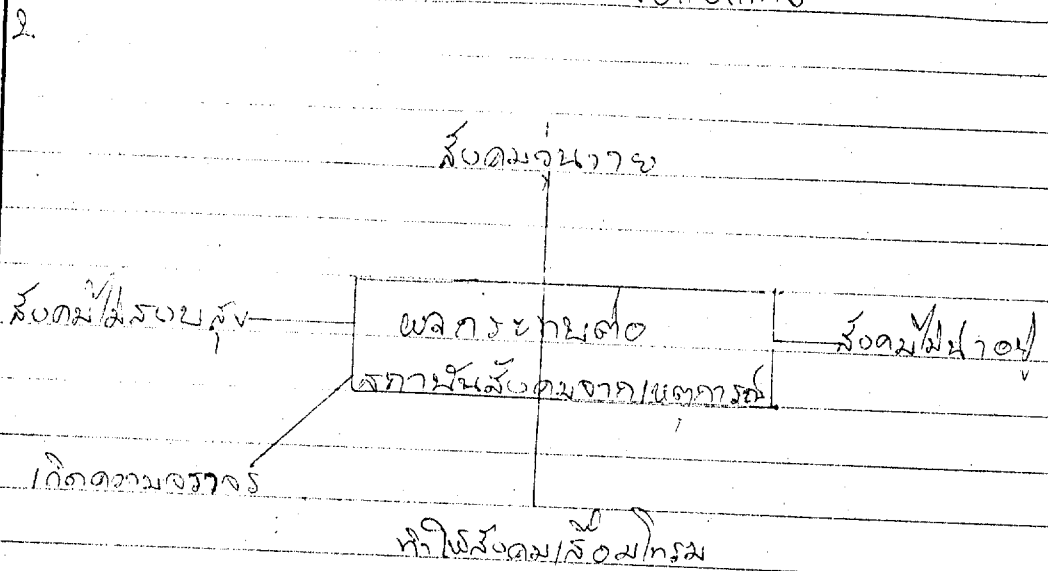 2.
สังคมวุ่นวาย
สังคมไม่สงบสุข
ผลกระทบต่อ
สถาบันสังคมจากเหตุการณ์
สังคมไม่น่าอยู่
เกิดความจราจร
ทำให้สังคมเสื่อมโทรม